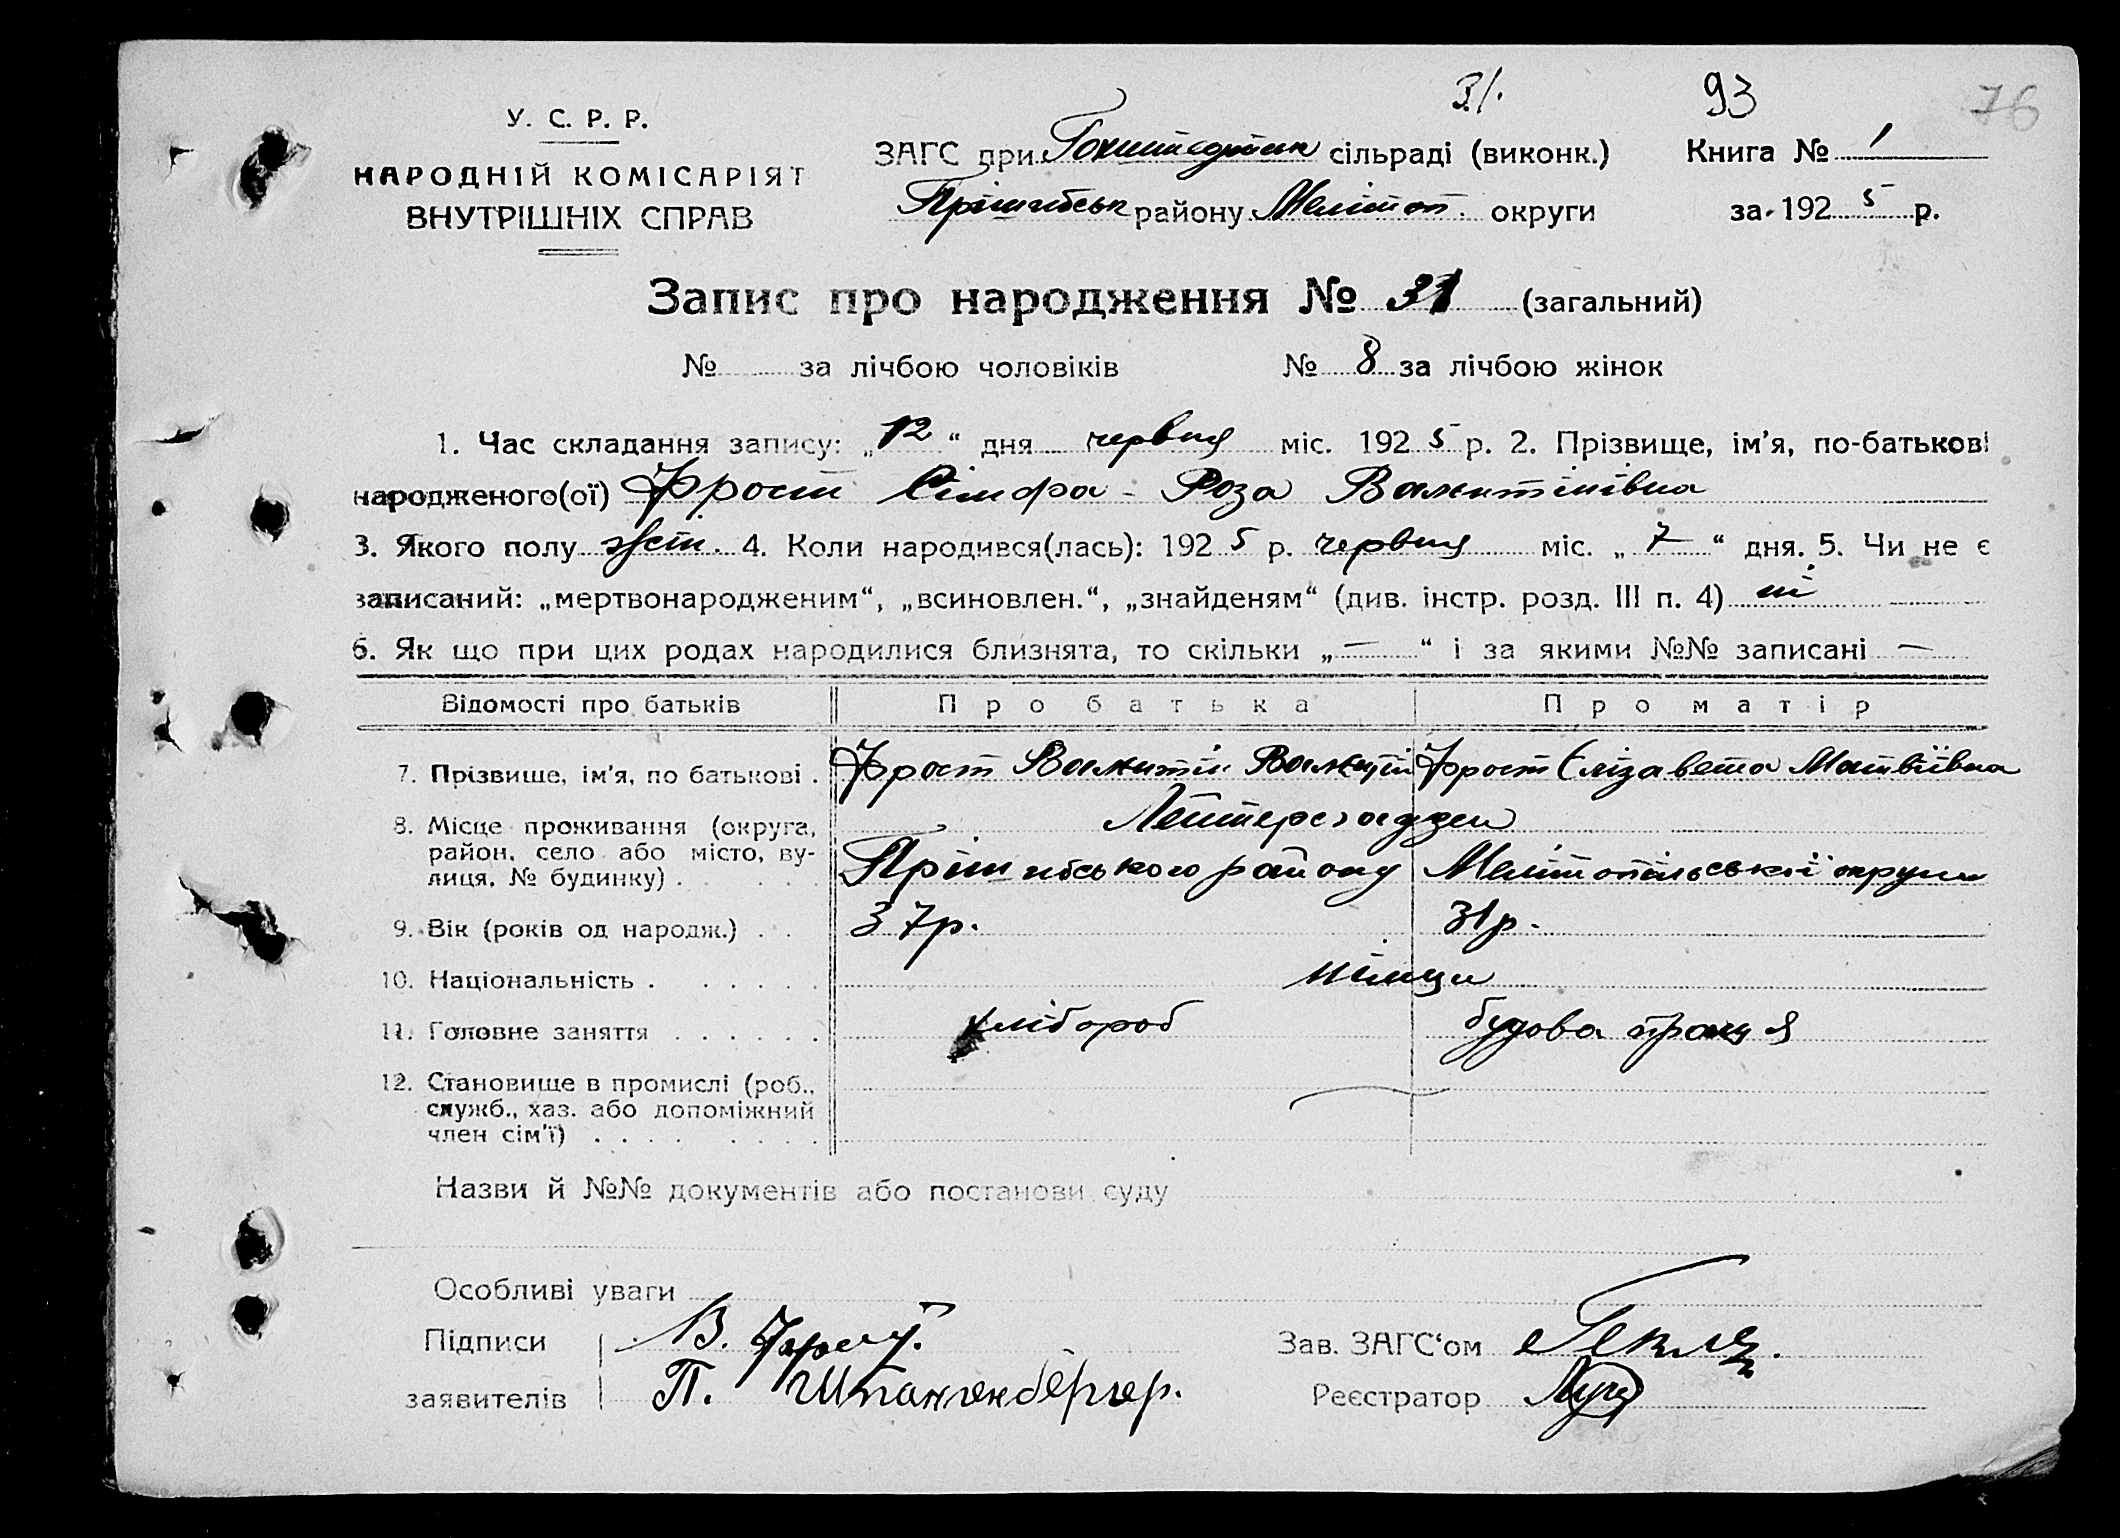 31.
93
76
У. С. Р. Р.
НАРОДНІЙ КОМІСАРІЯТ
ВНУТРІШНІХ СПРАВ
ЗАГС при сільраді (виконк.) Книга № 1
Прішибськ району Меліт оп. округи за 192 5 р.
Запис про народження № 31 (загальний)
№ за лічбою чоловіків № 8 за лічбою жінок
1. Час складання запису: „ 12 “ дня червня міс. 192 5 р. 2. Прізвище, ім'я, по-батькові
народженого(ої) Фрост - Роза Валентинівна
3. Якого полу жін. 4. Коли народився(лась): 192 5 р. червня міс. „ 7 “ дня. 5. Чи не є
записаний: „мертвонародженим“, „всиновлен.“, „знайденям“ (див. інстр. розд. III п. 4) ні
6. Як що при цих родах народилися близнята, то скільки „ — “ і за якими №№ записані —
Відомості про батьків Про батька Про матір
7. Прізвище, ім'я, по батькові . Фрост Валентін Валентін Фрост Єлізавета Матвіївна
8. Місце проживання (округа,
район, село або місто, ву-
лиця, № будинку) . Прішибського району Мелітопільської округи
9. Вік (років од народж.) . . 37р. 31р.
10. Національність . німци
11. Головне заняття хлібороб будова праця
12. Становище в промислі (роб.,
служб., хаз. або допоміжний
член сім'ї)
Назви й №№ документів або постанови суду
Особливі уваги
Підписи В. Фрост. Зав. ЗАГС'ом
заявителів П. Штангенбергер. Реєстратор